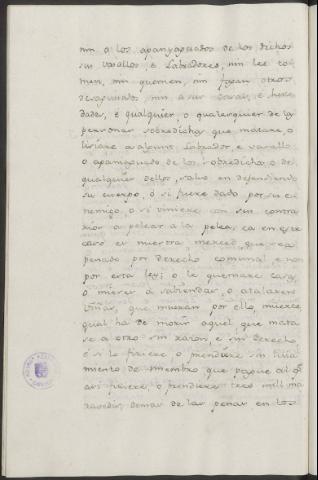 nin a los apaniaguados de los dichos
sus vasallos e Labradores, nin les to-
men, nin quemen, nin fagan otros
desaguisados nin a sus casas, e here-
dades, e qualquier, o qualesquier de las
personas sobredichas que matare, o
firiere a algunt Labrador, e vasallo
o apaniaguado de los sobredichos o de
qualquier dellos, salvo en defendiendo
su cuerpo, o si fuere dado por su ene-
migo, o si viniere con sus contra-
rios a pelear a la pelea, ca en este
caso es nuestra merced que sea
penado por derecho comunal, e non
por esta ley; o le quemare casa,
o mieses a sabiendas, o atalare
viñas, que mueran por ello, muerte
qual ha de morir aquel que mata-
se a otro sin razon, e sin derecho,
e si le firiere, o prendiere sin lisia-
miento de miembro que pague al q.
asi firiere, o prendiere tres mil ma-
ravedis, demas de las penas en los